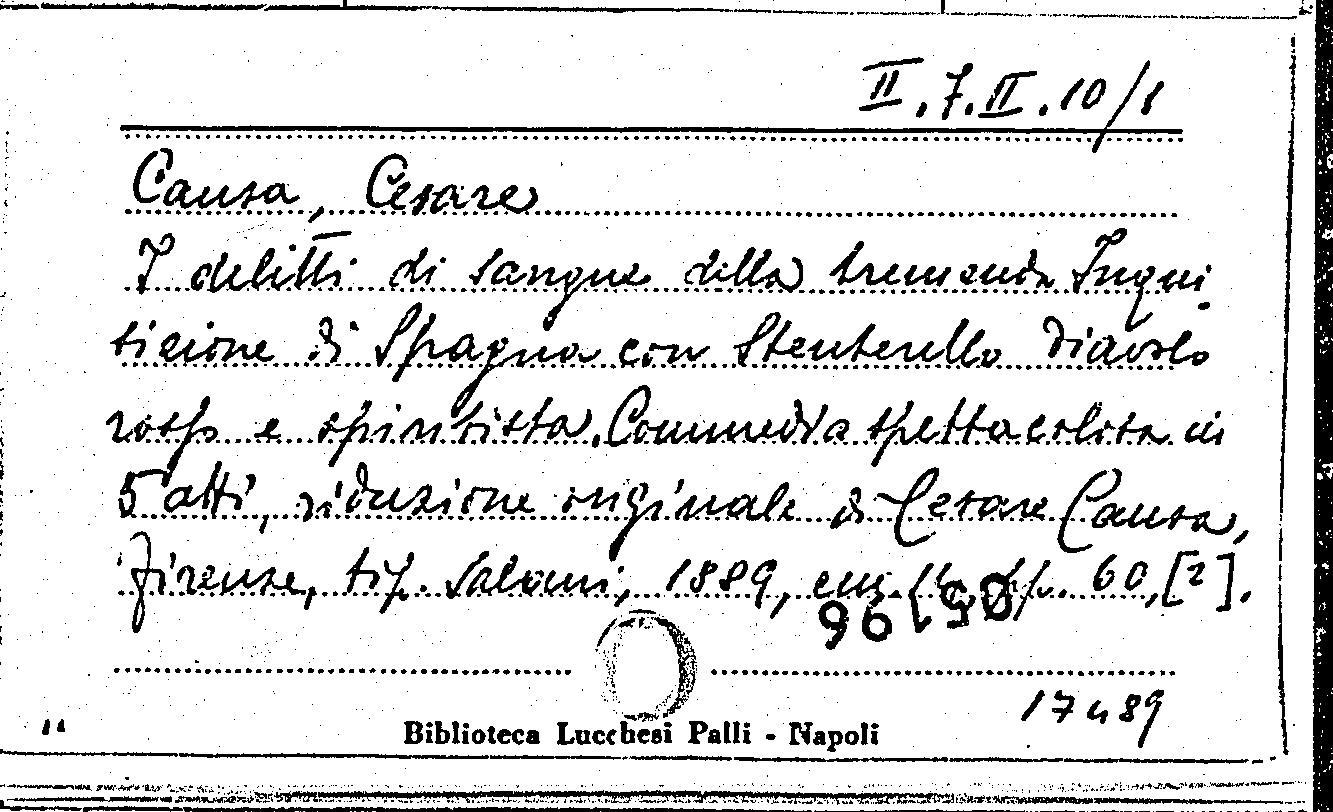 II.7.II.10/1
Causa, Cesare
I delitti di sangue della tremenda Inqui
sizione di Spagna con Stenterello Diavolo
rosso e spiritista. Commedia spettacolosa in
5 atti, riduzione originale di Cesare Causa,
Firenze, tip. Salani, 1889, cm. pp. 60,[2].
05196
Biblioteca Lucchesi Palli - Napoli